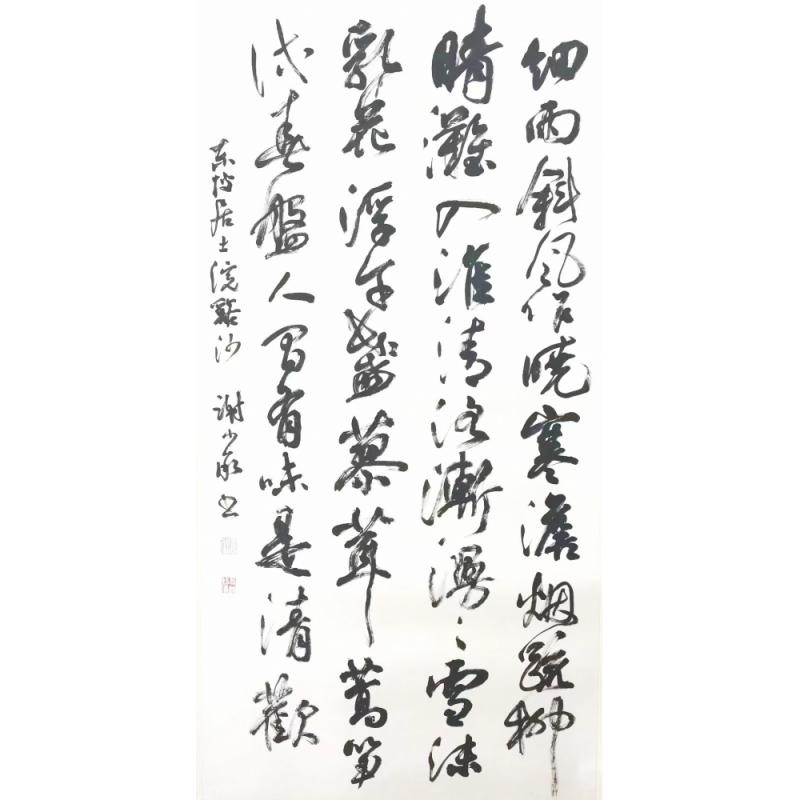 细雨斜风作晓寒澹烟疏柳
晴灘入淮清洛漸漫々雪沫
乳花浮午盏蓼茸蒿笋
试春盤人间有味是清歡
东坡居士浣谿沙 谢少书